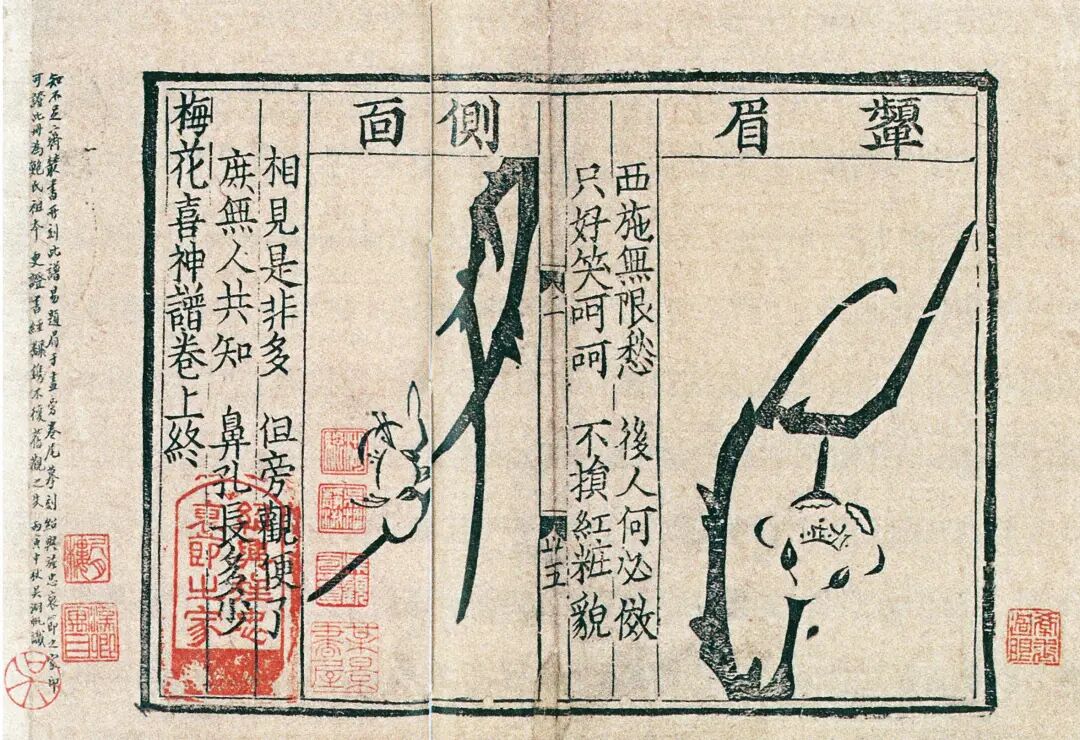 顰眉
西施無限愁 後人何必傚
只好笑呵呵 不損紅粧貌
廿五
側面
相見是非多 但旁觀便了
庶無人共知 鼻孔長多少
梅花喜神譜卷上終
知不足齋叢書再刻此譜易題眉于畫旁卷尾摹刻紹興旌忠褒節之家印
可證此冊為鮑氏祖本更證書經翻鐫不復舊觀之失 丙寅中秋吳湖帆識